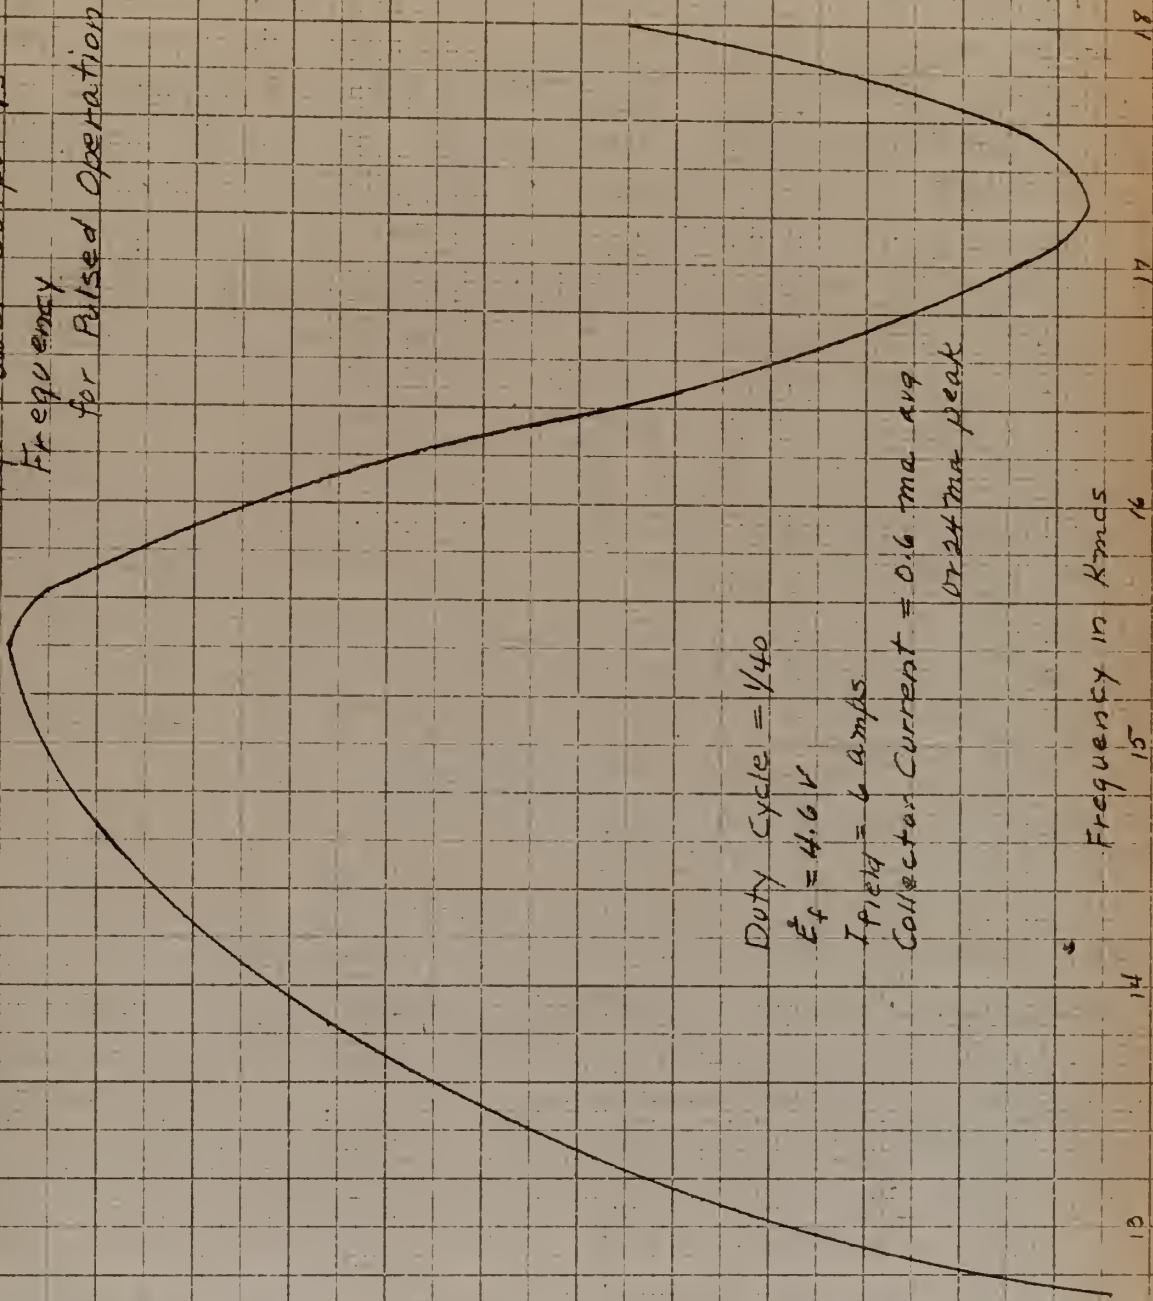 Frequency
for Pulsed Operation
Duty Cycle = 1/40
Ef = 4.6 V
I field = 6 amps
Collector Current = 0.6 ma avg
or 24 ma peak
Frequency in Kmcs
13 14 15 16 17 18